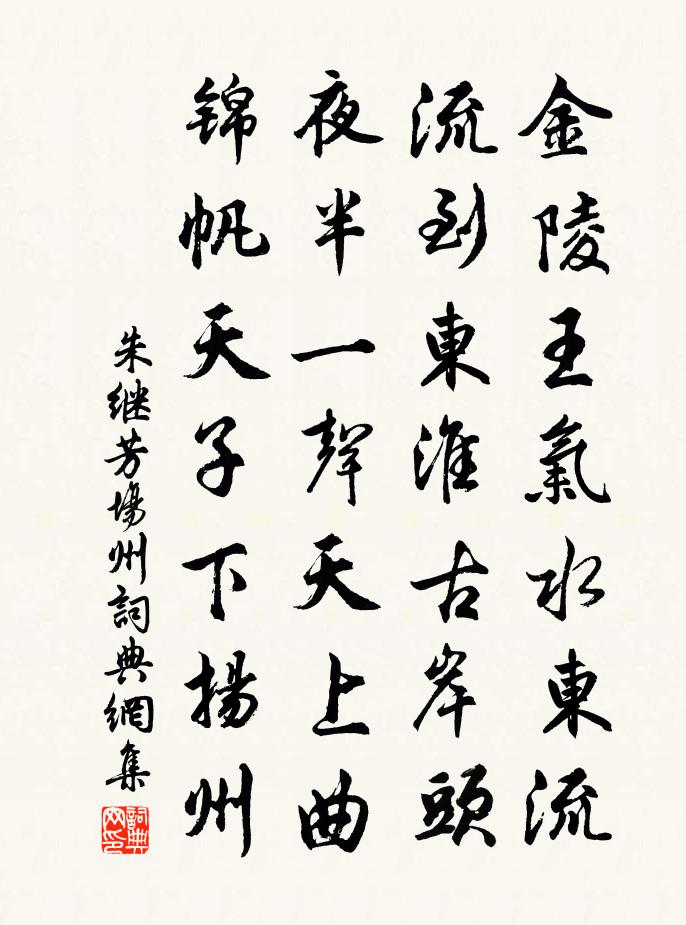 金陵王氣水東流
流到東淮古岸頭
夜半一聲天上曲
锦帆天子下揚州
朱继芳揚州詞典網集
詞典网印